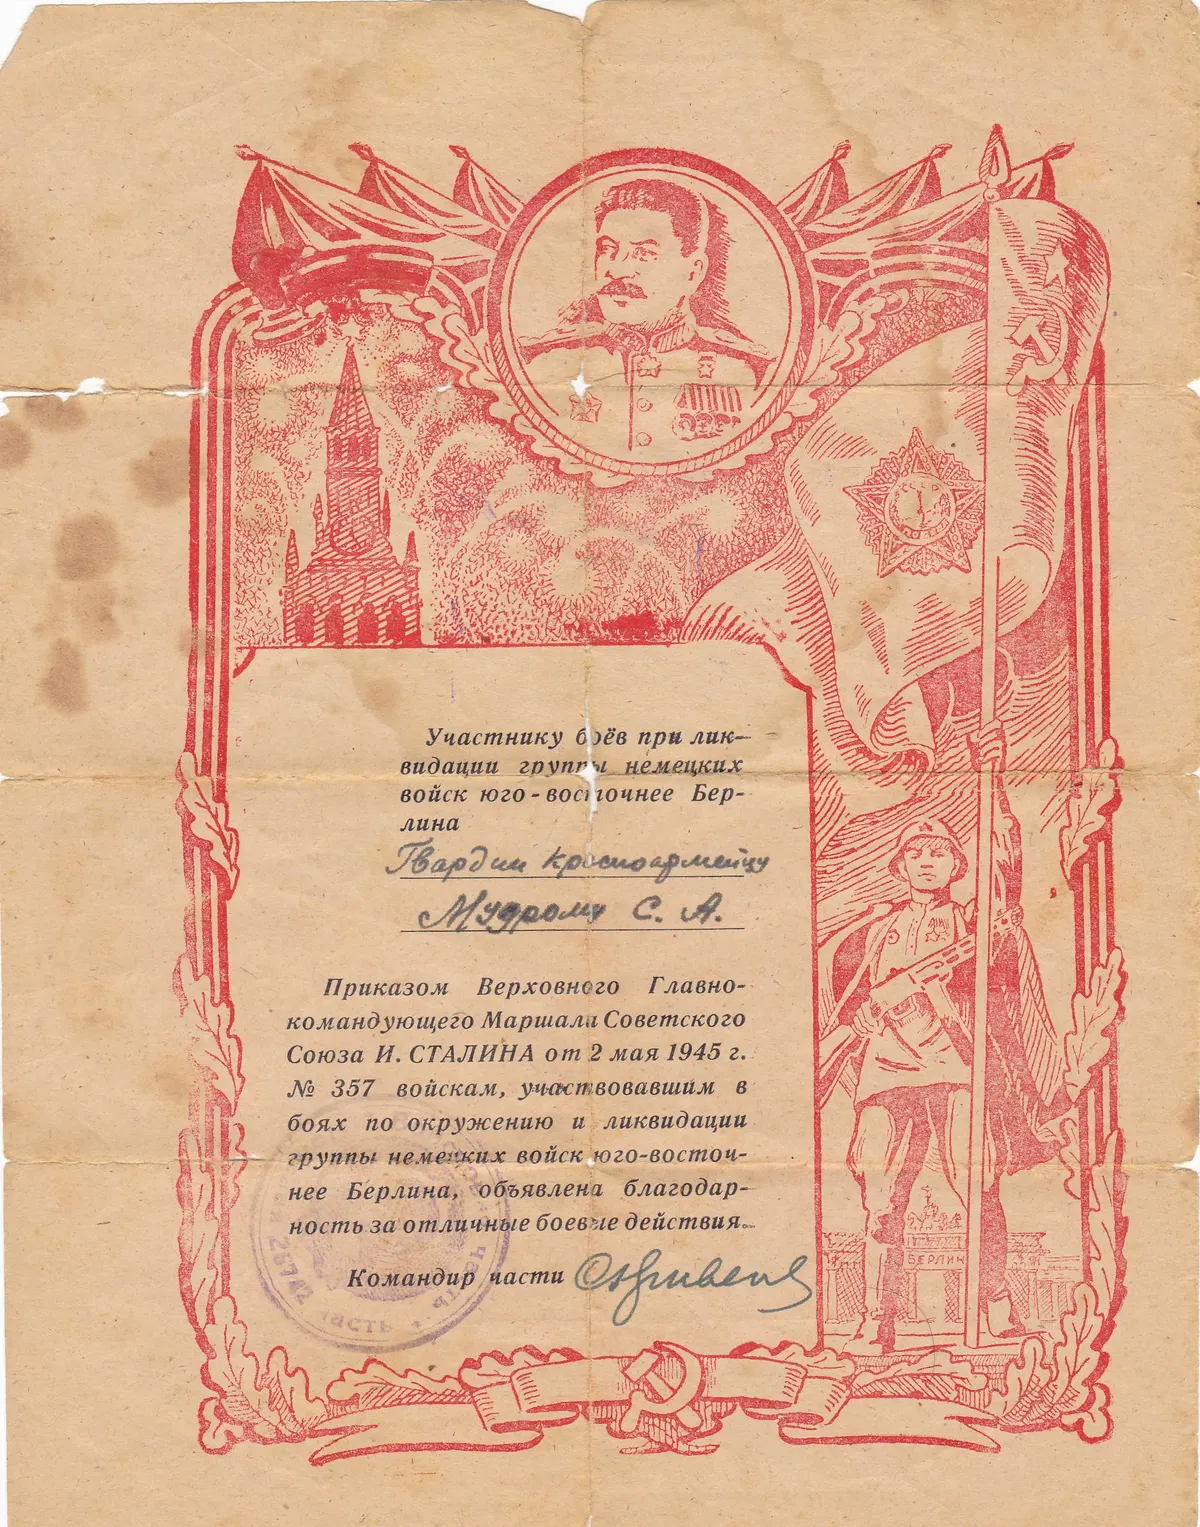 СССР
Участнику боёв при лик-
видации группы немецких
войск юго-восточнее Бер-
лина
Гвардии красноармейцу
Мудрому С. А.
Приказом Верховного Главно-
командующего Маршала Советского
Союза И. СТАЛИНА от 2 мая 1945 г.
№ 357 войскам, участвовавшим в
боях по окружению и ликвидации
группы немецких войск юго-восточ-
нее Берлина, объявлена благодар-
ность за отличные боевые действия.
Командир части
БЕРЛИН
часть